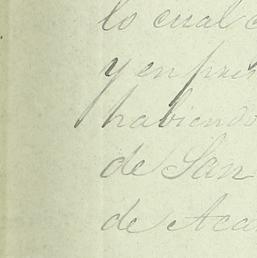 lo cual
y en
habiendo
de San
de Aca